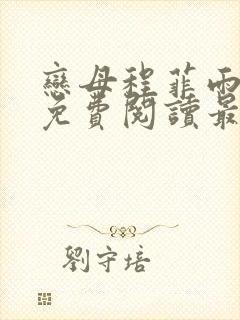 戀母程菲雨
免費閱讀最
劉守培